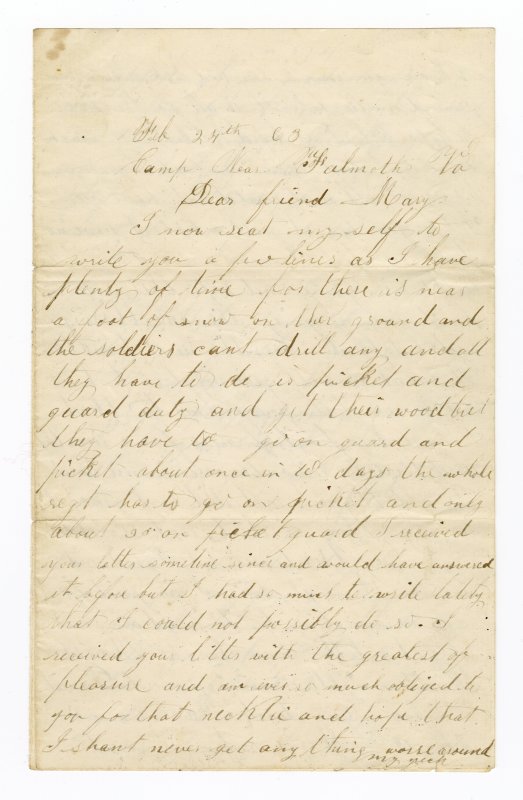 Feb 24th 63
Camp Near Falmoth Va
Dear friend Mary
I now seat my self to
write you a few lines as I have
plenty of time for there is near
a foot of snow on ther ground and
the soldiers cant drill any and all
they have to do is picket and
guard duty and get their wood but
they have to go on guard and
picket about once in 18 days the whole
regt has to go on picket and only
about 20 on picket guard I received
your letter sometime since and would have answered
it before but I had so much to write lately
that I could not possibly do so. I
received your letter with the greatest of
pleasure and am ever so much obliged to
you for that necktie and hope that
I shant never get any thing worse around
my neck